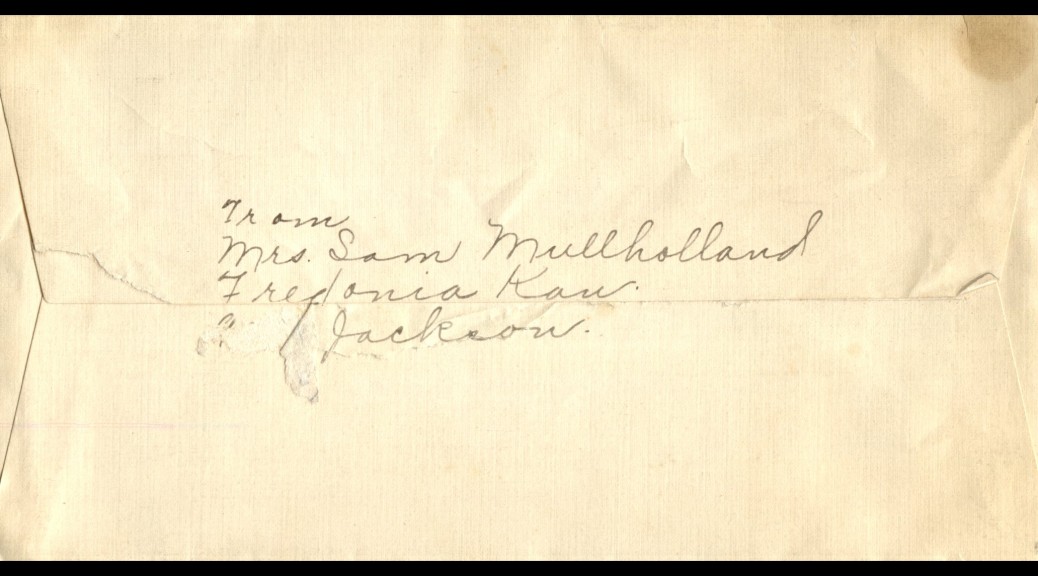 From
Mrs. Sam Mullholland
Fredonia Kan.
Jackson.